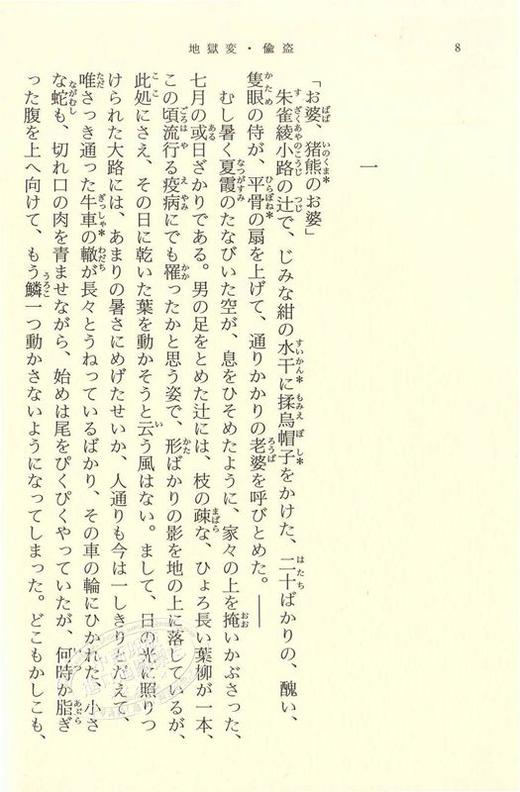 地獄変・偸盗
8
一
「お婆、猪熊のお婆」
朱雀綾小路の辻で、じみな紺の水干に揉烏帽子をかけた、二十ばかりの、醜い、
隻眼の侍が、平骨の扇を上げて、通りかかりの老婆を呼びとめた。――
むし暑く夏霞のたなびいた空が、息をひそめたように、家々の上を掩いかぶさった、
七月の或日ざかりである。男の足をとめた辻には、枝の疎な、ひょろ長い葉柳が一本、
この頃流行る疫病にでも罹ったかと思う姿で、形ばかりの影を地の上に落しているが、
此処にさえ、その日に乾いた葉を動かそうと云う風はない。まして、日の光に照りつ
けられた大路には、あまりの暑さにめげたせいか、人通りも今は一しきりとだえて、
唯さっき通った牛車の轍が長々とうねっているばかり、その車の輪にひかれた、小さ
な蛇も、切れ口の肉を青ませながら、始めは尾をぴくぴくやっていたが、何時か脂ぎ
った腹を上へ向けて、もう鱗一つ動かさないようになってしまった。どこもかしこも、